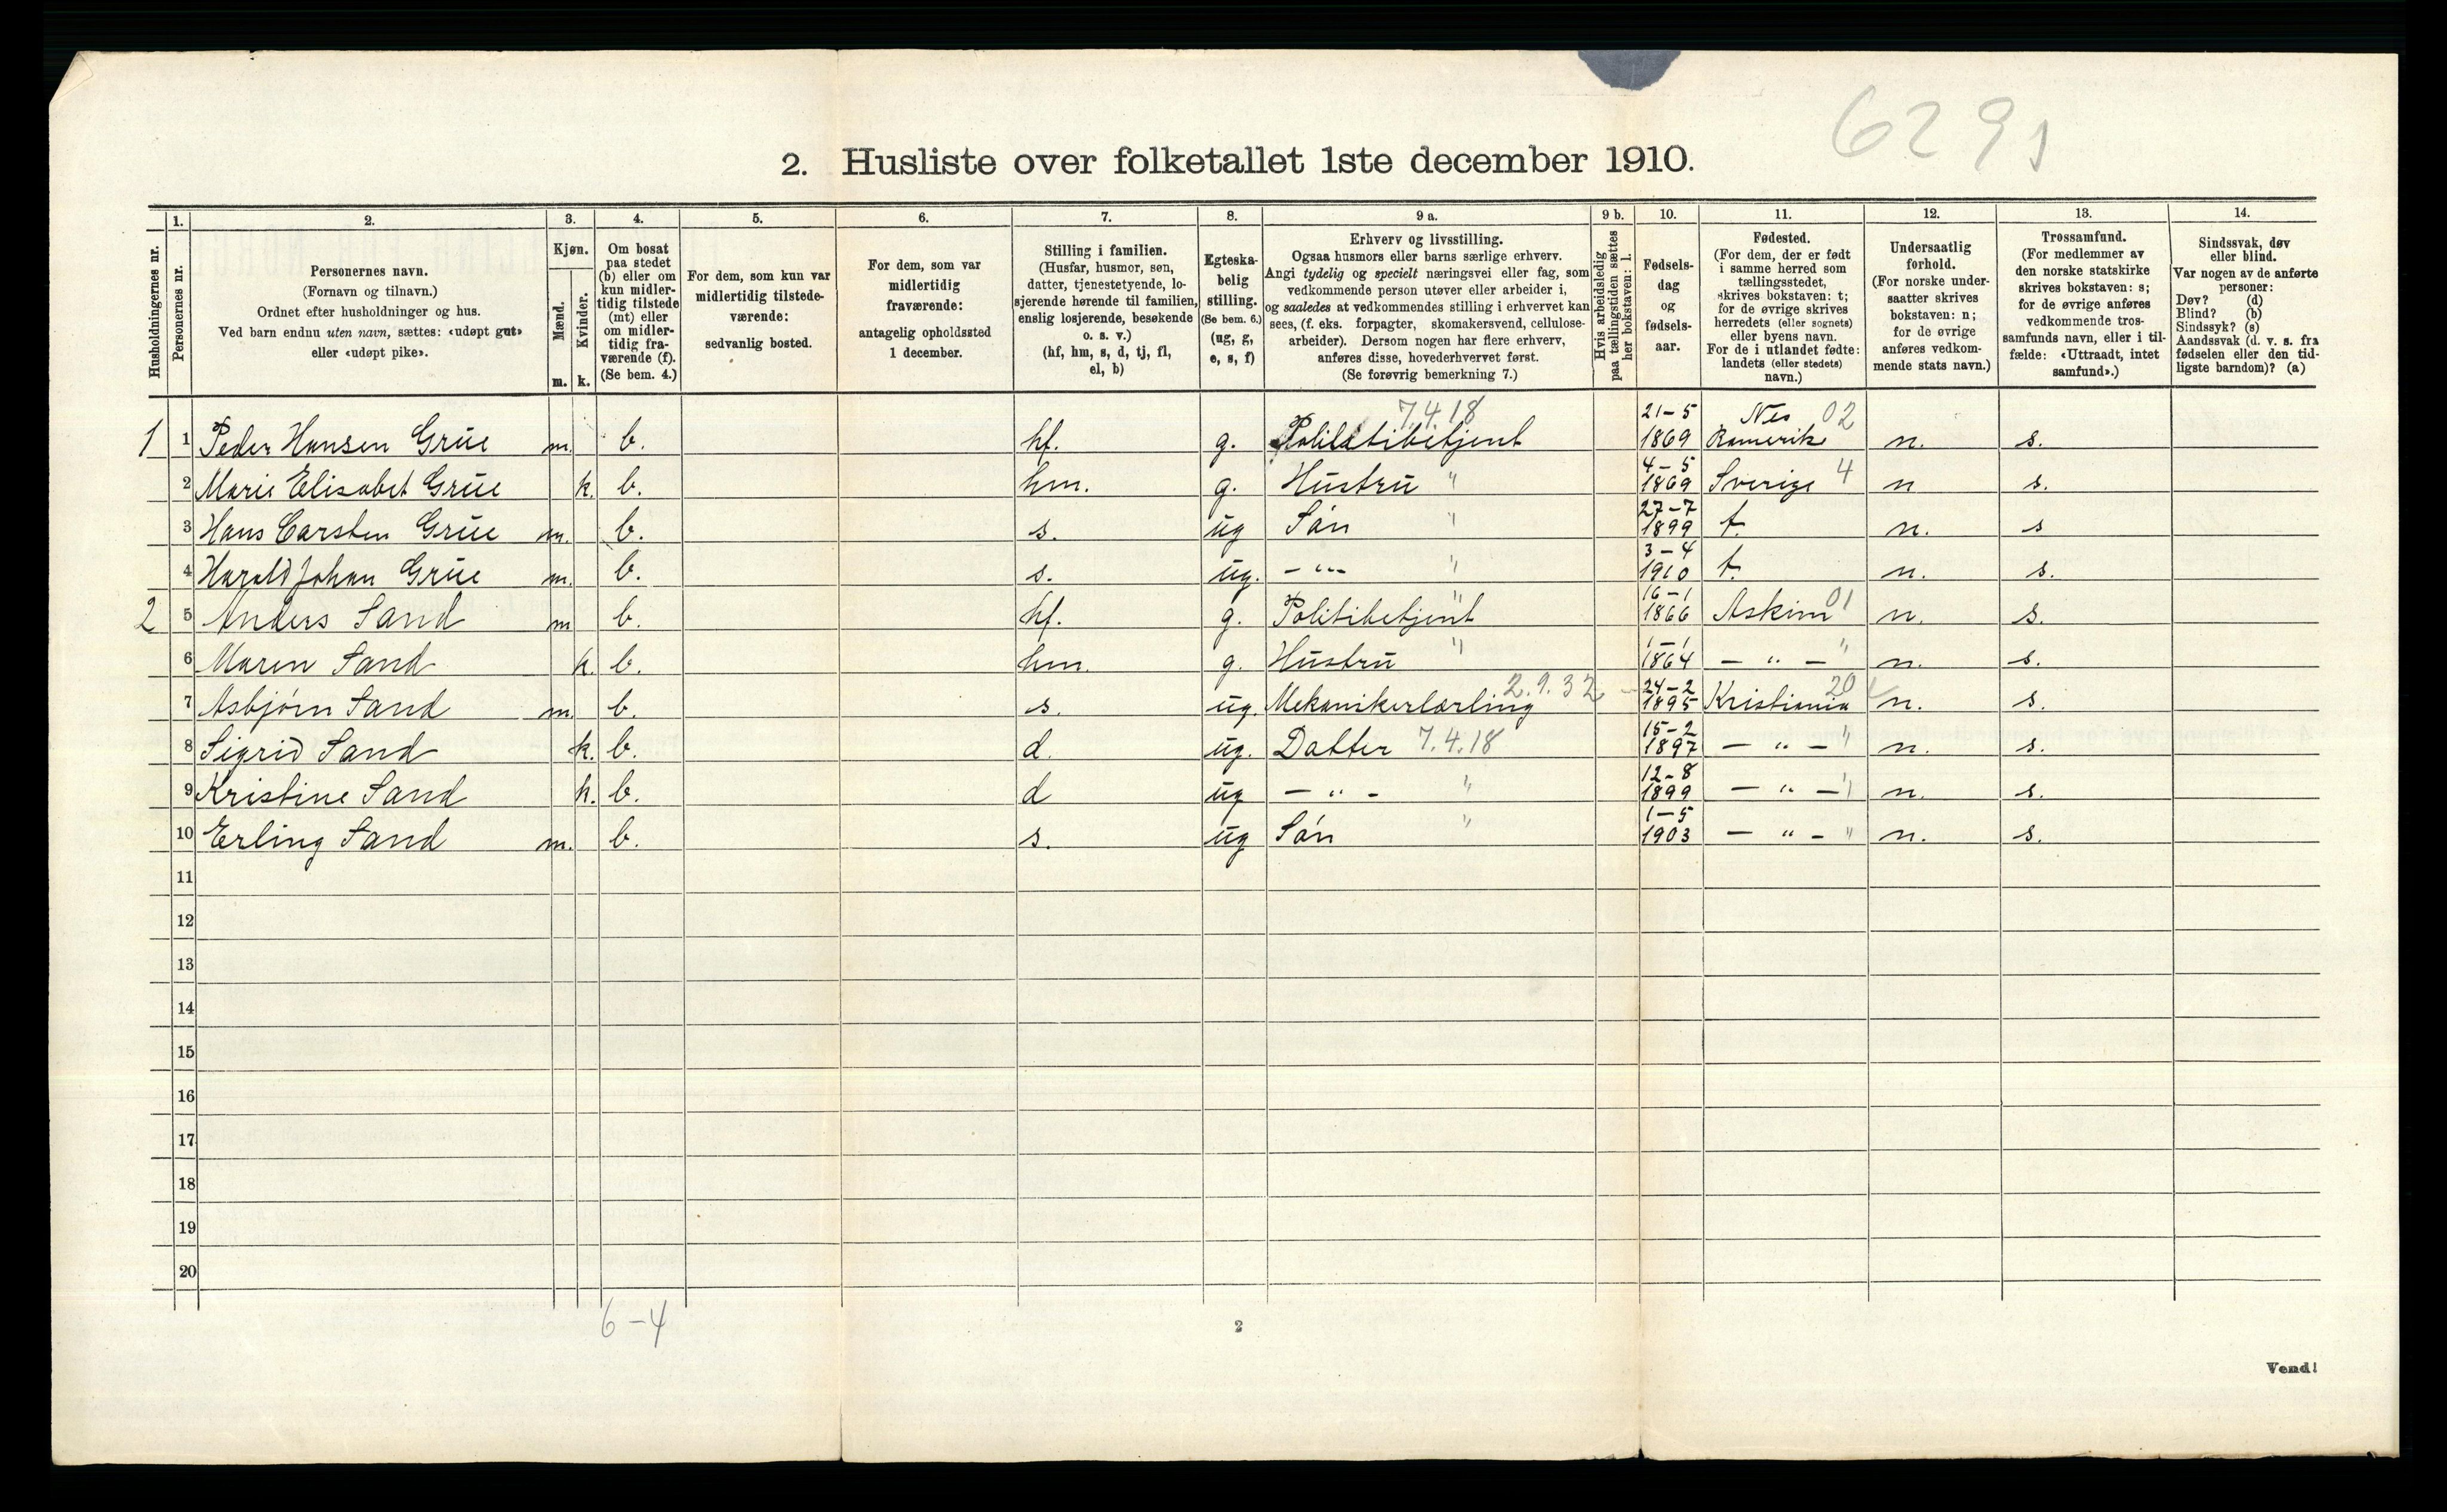 6291
2. Husliste over folketallet 1ste december 1910.
Husholdningernes nr.
1. Personernes nr.
2. Personernes navn.
(Fornavn og tilnavn.)
Ordnet efter husholdninger og hus.
Ved barn endnu uten navn, sættes: «udøpt gut»
eller «udøpt pike».
3. Kjøn.
Mænd. m.
Kvinder. k.
4. Om bosat
paa stedet
(b) eller om
kun midler-
tidig tilstede
(mt) eller
om midler-
tidig fra-
værende (f).
(Se bem. 4.)
5. For dem, som kun var
midlertidig tilstede-
værende:
sedvanlig bosted.
6. For dem, som var
midlertidig
fraværende:
antagelig opholdssted
1 december.
7. Stilling i familien.
(Husfar, husmor, søn,
datter, tjenestetyende, lo-
sjerende hørende til familien,
enslig losjerende, besøkende
o. s. v.)
(hf, hm, s, d, tj, fl,
el, b)
8. Egteska-
belig
stilling.
(Se bem. 6.)
(ug, g,
e, s, f)
9 a. Erhverv og livsstilling.
Ogsaa husmors eller barns særlige erhverv.
Angi tydelig og specielt næringsvei eller fag, som
vedkommende person utøver eller arbeider i,
og saaledes at vedkommendes stilling i erhvervet kan
sees, (f. eks. forpagter, skomakersvend, cellulose-
arbeider). Dersom nogen har flere erhverv,
anføres disse, hovederhvervet først.
(Se forøvrig bemerkning 7.)
9 b. Hvis arbeidsledig
paa tællingstiden sættes
her bokstaven: l.
10. Fødsels-
dag
og
fødsels-
aar.
11. Fødested.
(For dem, der er født
i samme herred som
tællingsstedet,
skrives bokstaven: t;
for de øvrige skrives
herredets (eller sognets)
eller byens navn.
For de i utlandet fødte:
landets (eller stedets)
navn.)
12. Undersaatlig
forhold.
(For norske under-
saatter skrives
bokstaven: n;
for de øvrige
anføres vedkom-
mende stats navn.)
13. Trossamfund.
(For medlemmer av
den norske statskirke
skrives bokstaven: s;
for de øvrige anføres
vedkommende tros-
samfunds navn, eller i til-
fælde: «Uttraadt, intet
samfund».)
14. Sindssvak, døv
eller blind.
Var nogen av de anførte
personer:
Døv? (d)
Blind? (b)
Sindssyk? (s)
Aandssvak (d. v. s. fra
fødselen eller den tid-
ligste barndom)? (a)
7.4.18 21-5 Nes 02
1 1 Peder Hansen Grüe m. b. hf. g. Politibetjent 1869 Romerike n. s.
4-5
2 Marie Elisabet Grüe k. b. hm. g. Hustrü " 1869 Sverige 4 n s.
27-7
3 Hans Carsten Grüe m. b. s. üg Søn " 1899 t. n. s
3-4
4 Harald Johan Grüe m. b. s. üg. - " - " 1910 t. n. s.
16-1
2 5 Anders Sand m b. hf. g. Politibetjent " 1866 Askim 01 n. s.
1-1
6 Maren Sand k. b. hm. g. Hustrü " 1864 - " - " n. s.
24-2
7 Asbjørn Sand m. b. s. üg. Mekanikerlærling 2.9.32 1895 Kristiania 20 n. s.
15-2
8 Sigrid Sand k. b. d. üg. Datter 7.4.18 1897 - " - " n. s.
12-8
9 Kristine Sand k. b. d üg - " - " 1899 - " - " n. s.
1-5
10 Erling Sand m. b. s. üg Søn " 1903 - " - " n. s.
11
12
13
14
15
16
17
18
19
20
6-4
2
Vend!